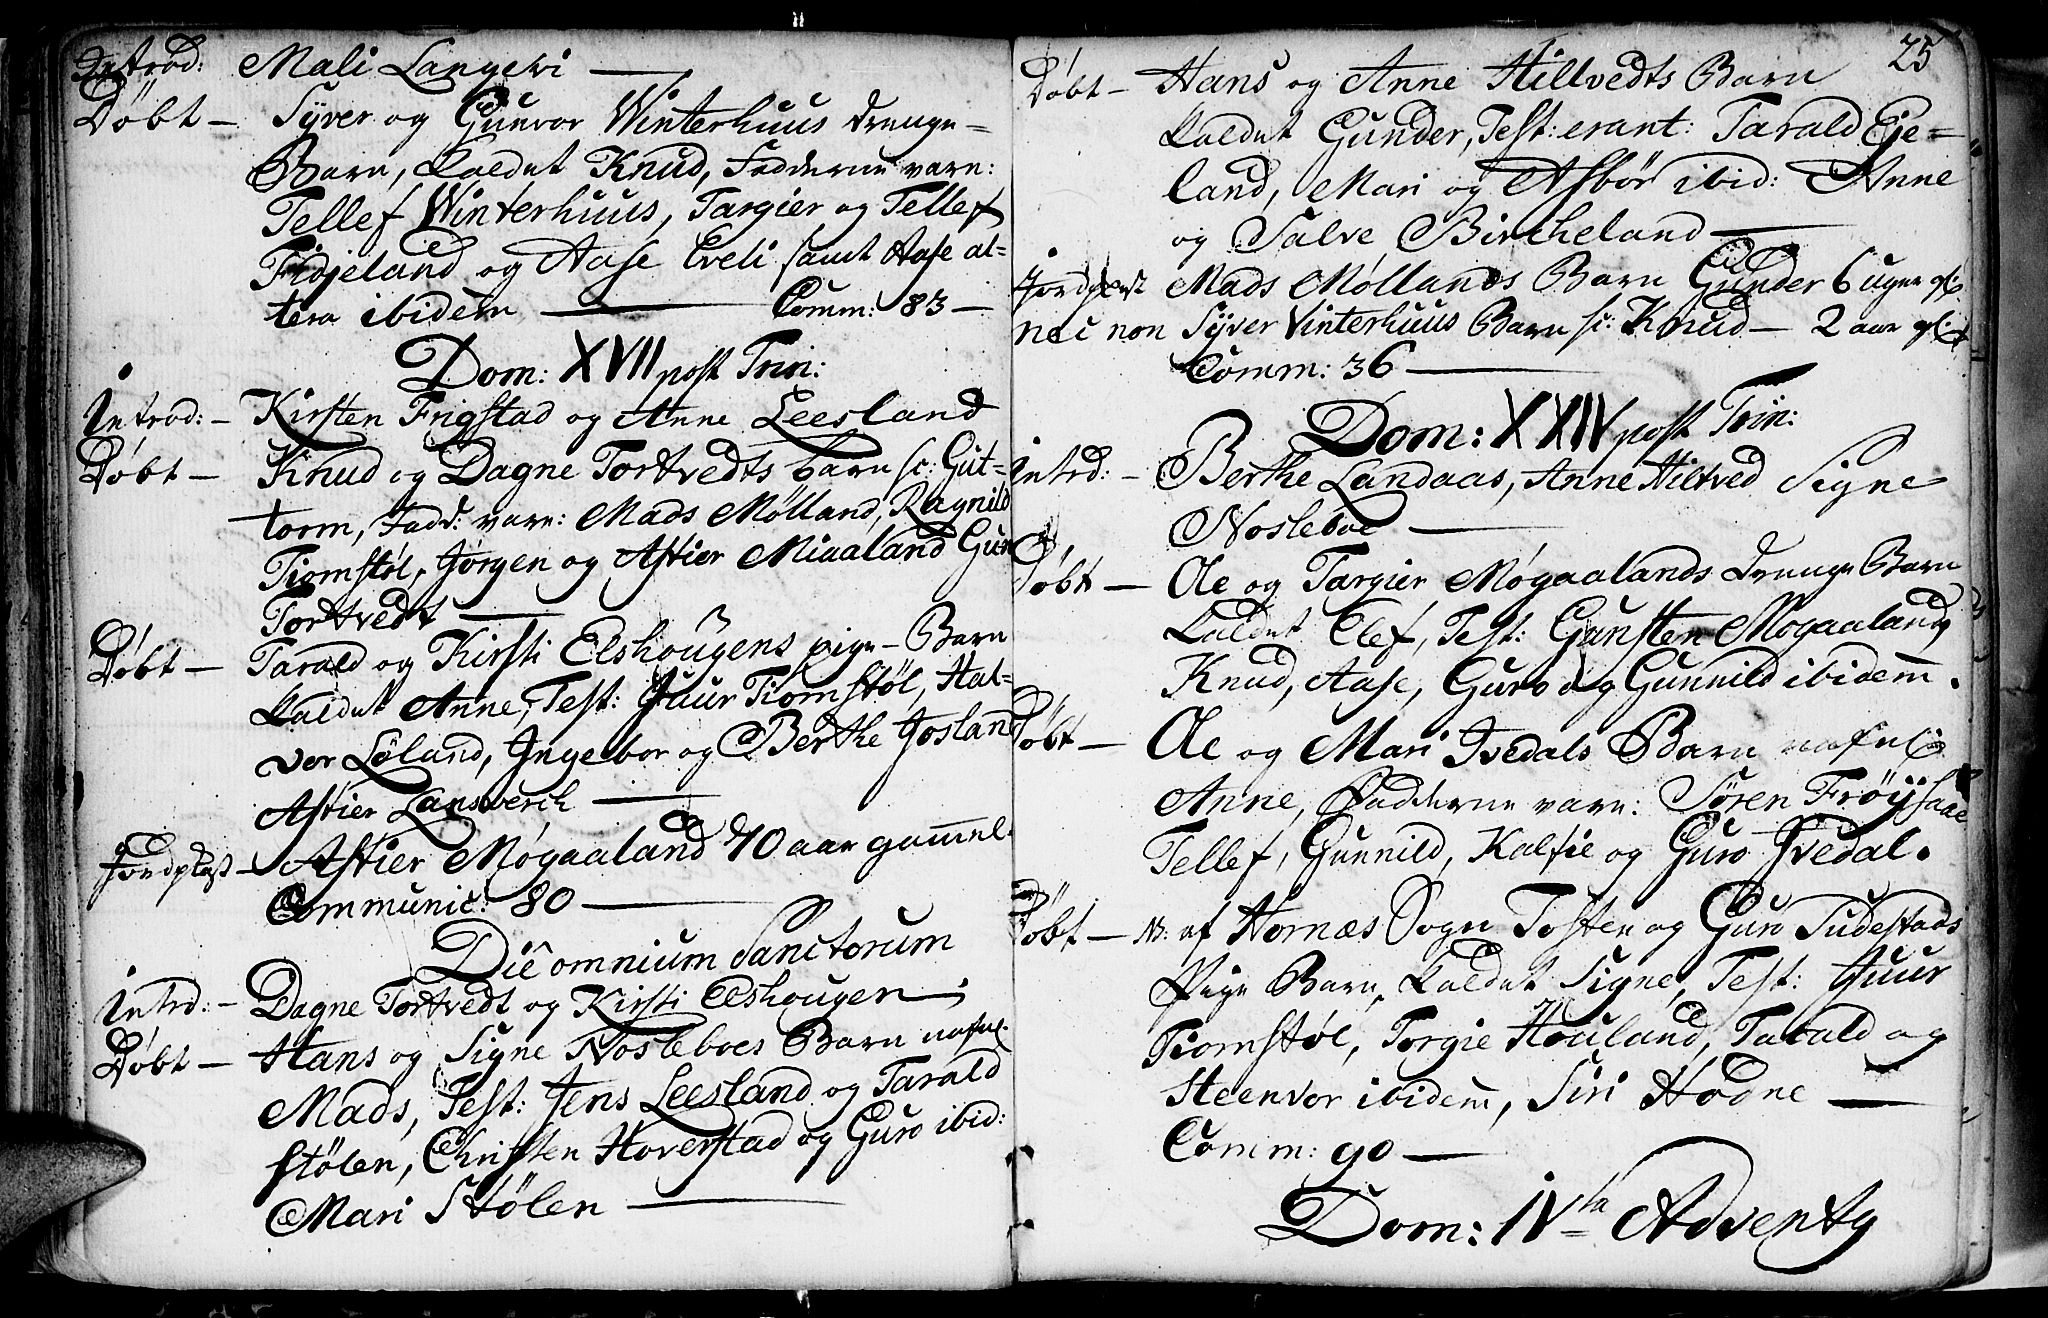 Introd: Mali Langevi
Døbt — Syver og Gunvor Winterhuus drenge=
Barn, kaldet Knud, Fadderne vare:
Tellef Winterhuus, Targier og Tellef
Fidjeland og Aase Eveli samt Aase al-
tera ibidem — Comm: 83 —
Dom: XVII post Trin:
Introd: — Kirsten Frigstad og Anne Leesland
Døbt — Knud og Dagne Tortvedts barn sc: Gut-
torm, Fadd: vare: Mads Mølland, Ragnild
Tiomstøl, Jørgen og Astier Miaaland Gur
Tortvedt —
Døbt — Tarald og Kirsti Elshougens pige-Barn
kaldet Anne, Test: Guur Tiomstøl, Hal-
vor Løland, Ingebor og Berthe Josland
Astier Lansverch —
Jordpaast — Astier Møgaaland 70 aar gammel.
Communic: 80 —
Die omnium Sanctorum
Intrd: — Dagne Tortvedt og Kirsti Elshougen —
Døbt — Hans og Signe Nosleboes Barn nafnl.
Mads, Test: Jens Leesland og Tarald
Stølen, Christen Hoverstad og Guro ibid:
Mari Stølen —
25
Døbt — Hans og Anne Hillvedts Barn
kaldet Gunder, Test: erant: Tarald Eje=
land, Mari og Asbør ibid: Anne
og Salve Bircheland —
Jordpaast Mads Møllands Barn Gunder 6 uger gl:
nec non Syver Vinterhuus Barn sc: Knud — 2 aar gl:
Comm: 36 —
Dom: XXIV post Trin:
Intrd: — Berthe Landaas, Anne Hiltved Signe
Nosleboe —
Døbt — Ole og Targier Møgaalands drenge Barn
kaldet Elef, Test: Gunsten Møgaaland,
Knud, Aase, Guro og Gunnild ibidem.
Døbt — Ole og Mari Ivedals Barn nafnl:
Anne, Fadderne vare: Søren Frøysaae
Tellef, Gunnild, Kalfie og Guro Ivedal.
Døbt — N: af Hornæs Sogn Tosten og Guro Tudestads
Pige Barn, kaldet Signe, Test: Guur
Tiomstøl, Torgie Houland, Tarald og
Steenvor ibidem, Siri Hodne —
Comm: 90 —
Dom: IVta Adventg